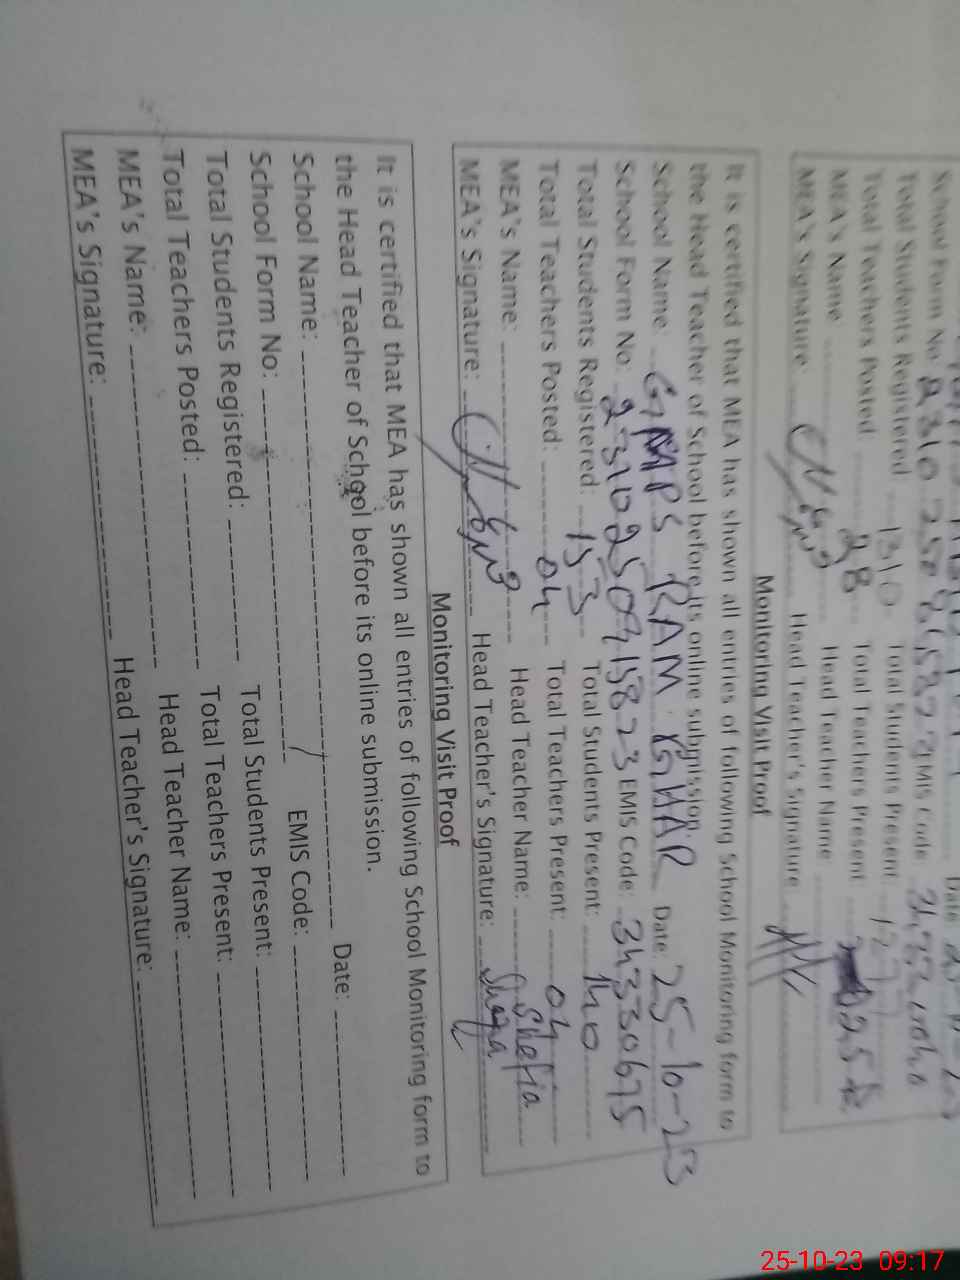 School Form No:
Total Students Registered: 1310 Total Students Present:
Total Teachers Posted: 28 Total Teachers Present:
MEA's Name: Head Teacher Name:
MEA's Signature: Head Teacher's Signature:
Monitoring Visit Proof
It is certified that MEA has shown all entries of following School Monitoring form to
the Head Teacher of School before its online submission.
School Name: GMPS RAM GHAR Date: 25-10-23
School Form No: 2310250415823 EMIS Code: 34330675
Total Students Registered: 153 Total Students Present: 140
Total Teachers Posted: 04 Total Teachers Present: 04
MEA's Name: Head Teacher Name: Shafia
MEA's Signature: Head Teacher's Signature:
Monitoring Visit Proof
It is certified that MEA has shown all entries of following School Monitoring form to
the Head Teacher of School before its online submission.
School Name: Date:
School Form No: EMIS Code:
Total Students Registered: Total Students Present:
Total Teachers Posted: Total Teachers Present:
MEA's Name: Head Teacher Name:
MEA's Signature: Head Teacher's Signature:
25-10-23 09:17